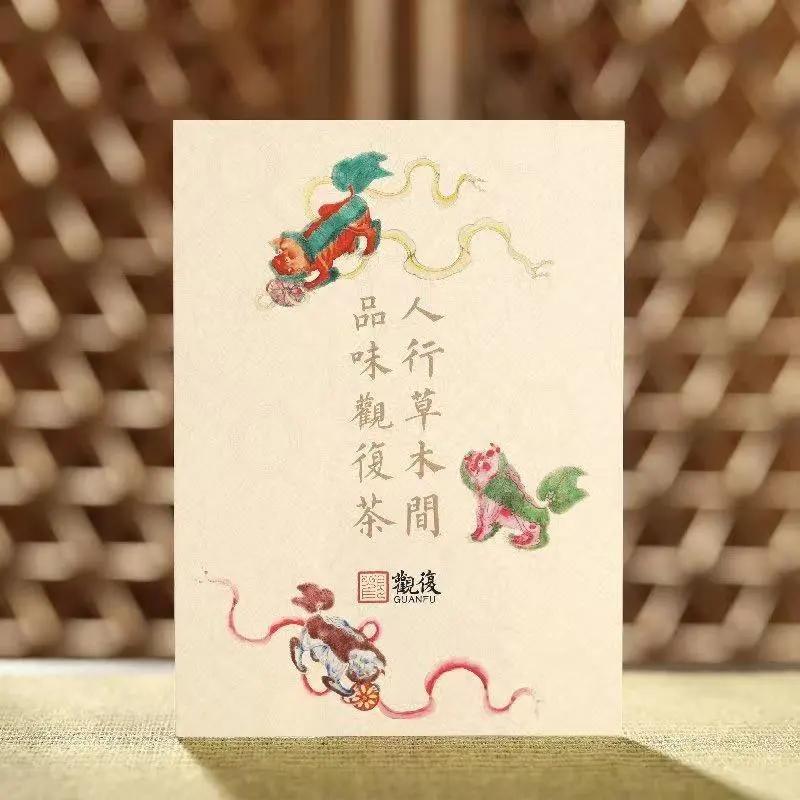 人行草木間
品味觀復茶
觀復
GUANFU